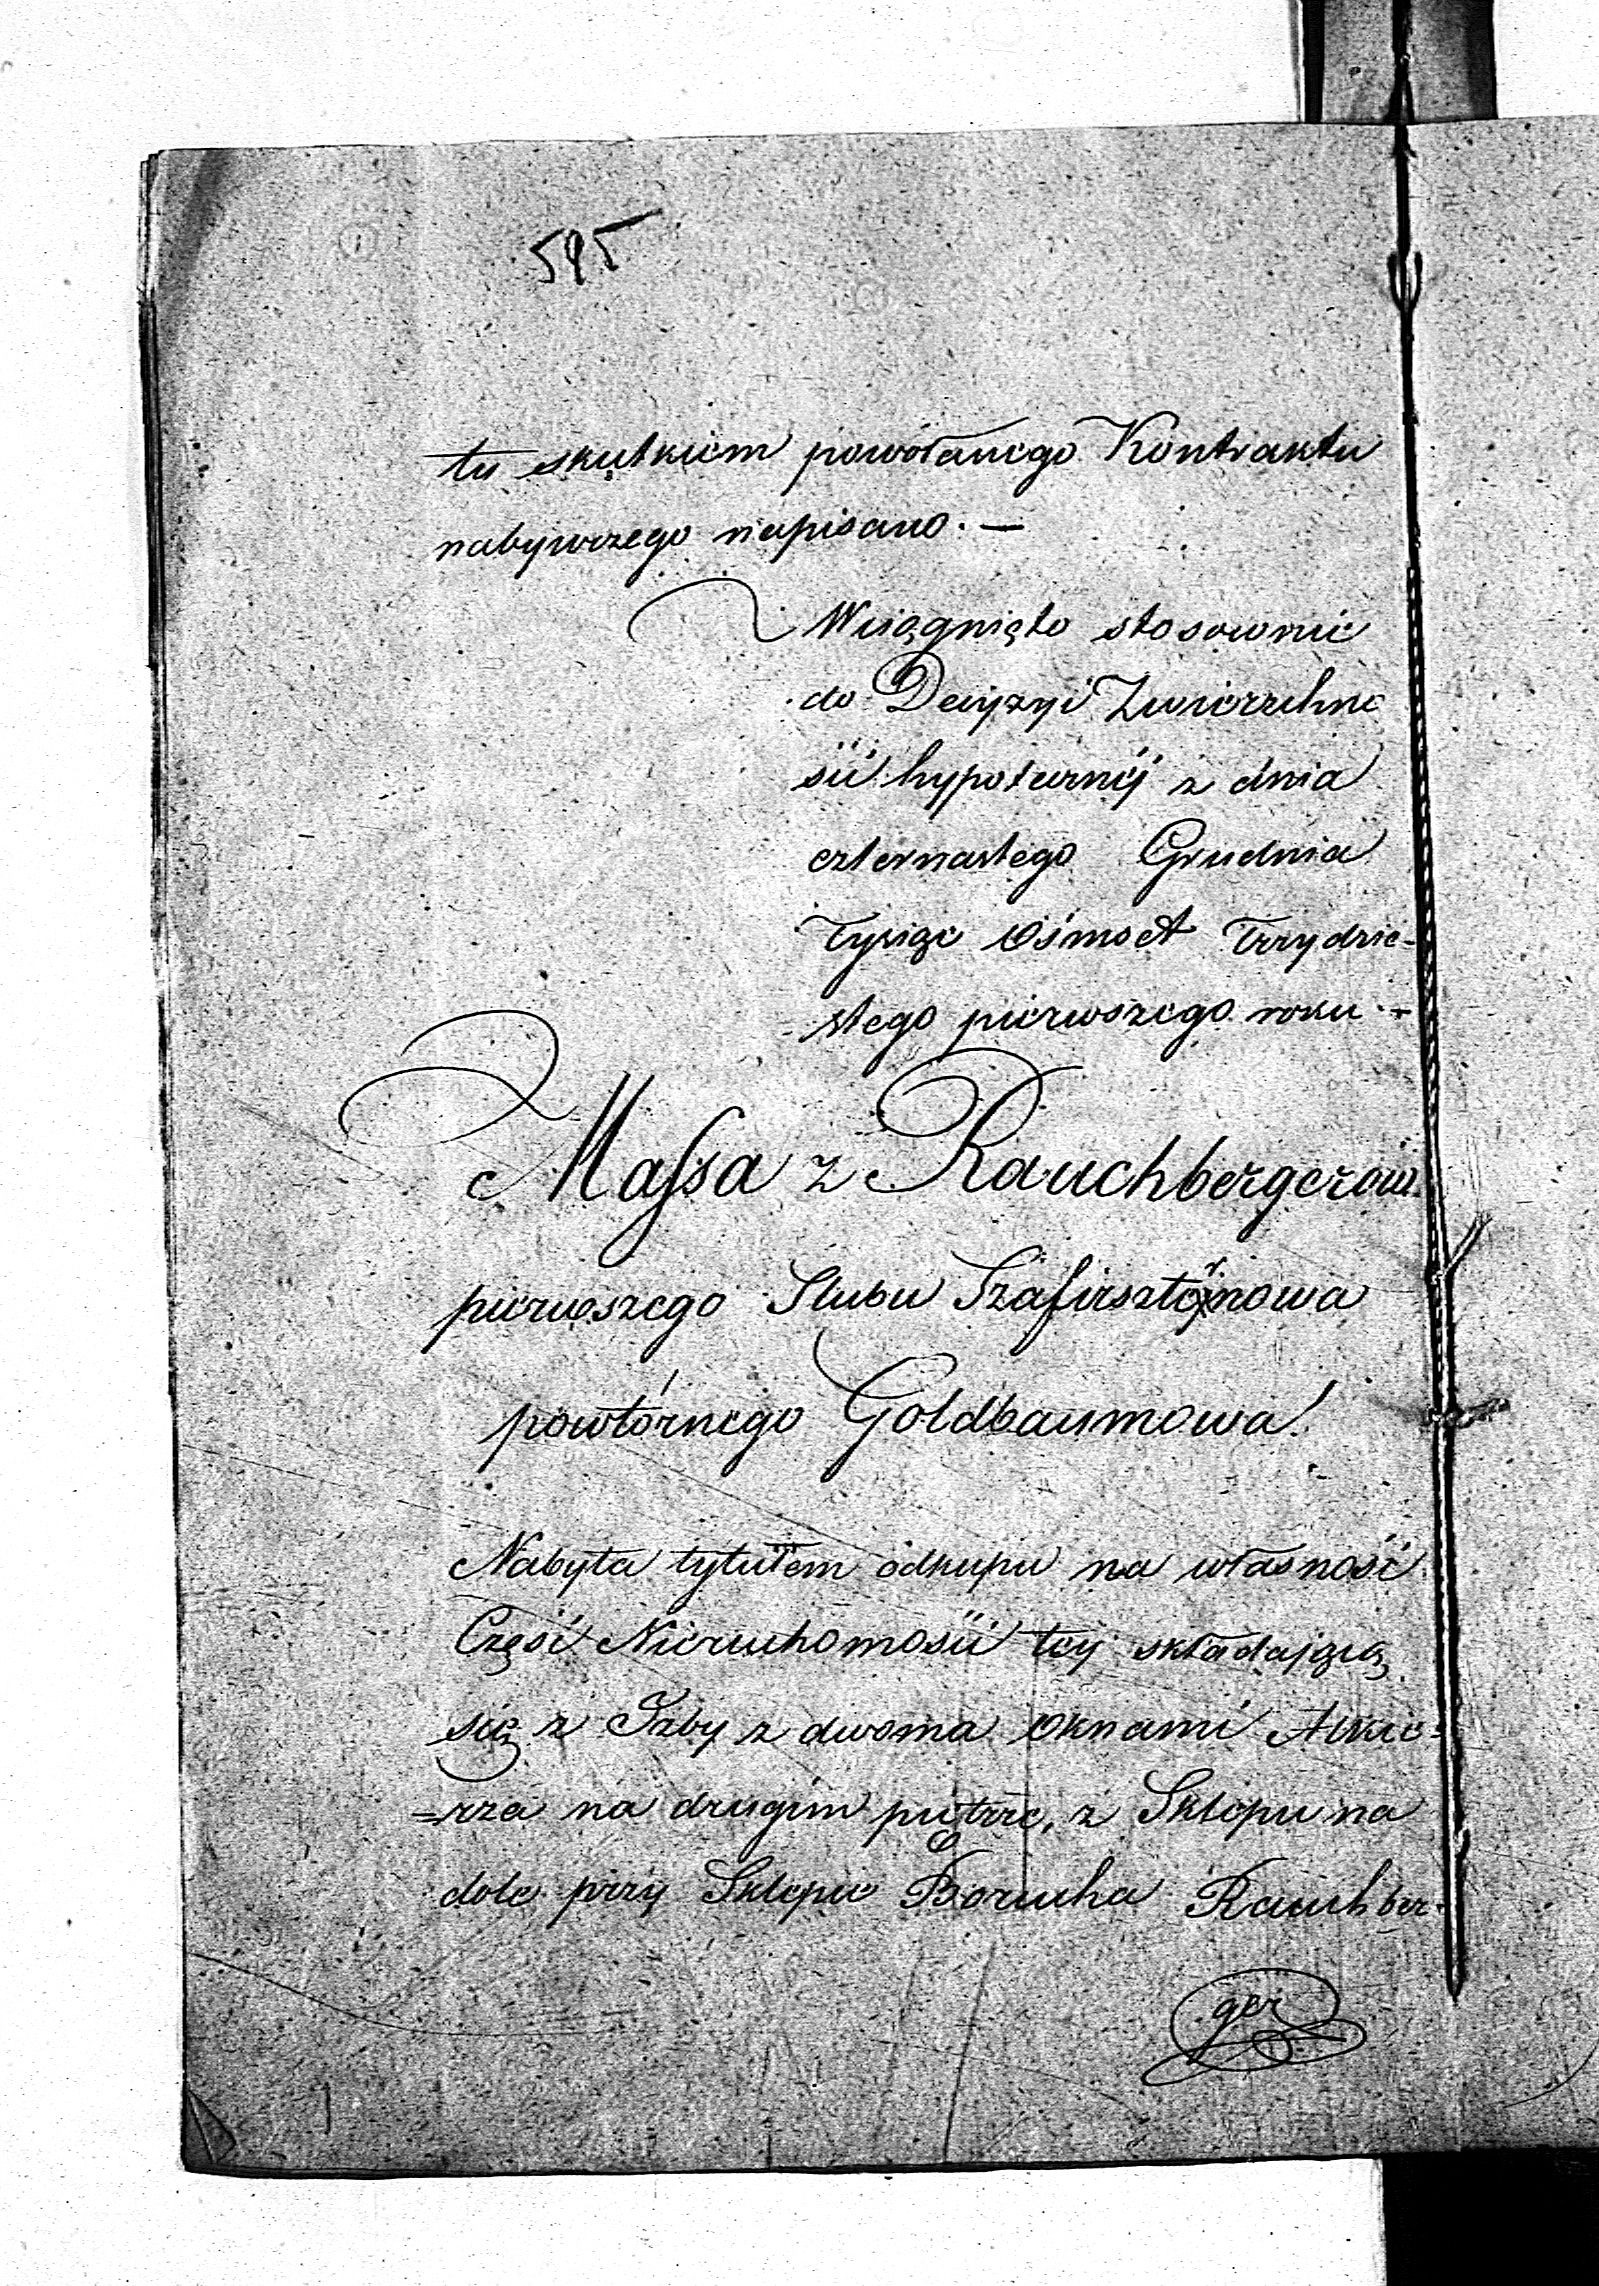 595
tu skutkiem powołanego Kontraktu
nabywczego napisano. —
Wciągnięto stosownie
do Decyzyi Zwierzchno
ści hypotecznéj z dnia
czternastego Grudnia
Tysiąc Ośmset Trzydzie-
stego pierwszego roku. -
Massa z Rauchbergerów
pierwszego Slubu Szafirsztéinowa
powtórnego Goldbaumowa!
Nabyta tytułem odkupu na własność
Część Nieruchomości téj składającą
się z Izby z dwoma oknami Alkie-
=rza na drugim piętrze, z Sklepu na
dole przy Sklepie Borucha Rauchber-
ger